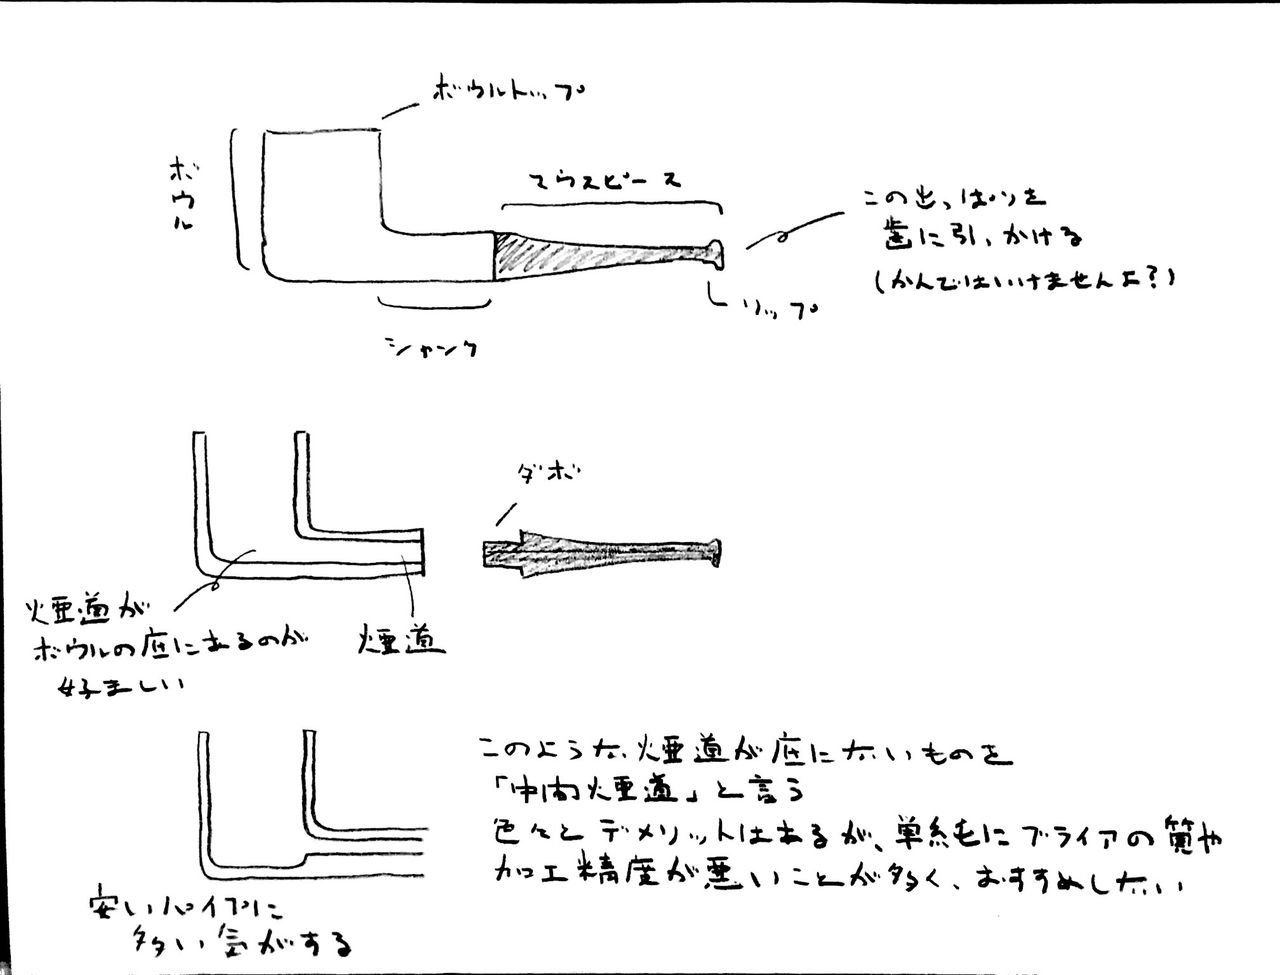 ボウルトップ
ボウル
マウスピース
この出っぱりを
歯に引っかける
(かんではいけませんよ?)
リップ
シャンク
ダボ
煙道が
ボウルの底にあるのが
好ましい
煙道
このような煙道が底にないものを
「中間煙道」と言う
色々とデメリットはあるが、単純にブライアの質や
加工精度が悪いことが多く、おすすめしない
安いパイプに
多い気がする